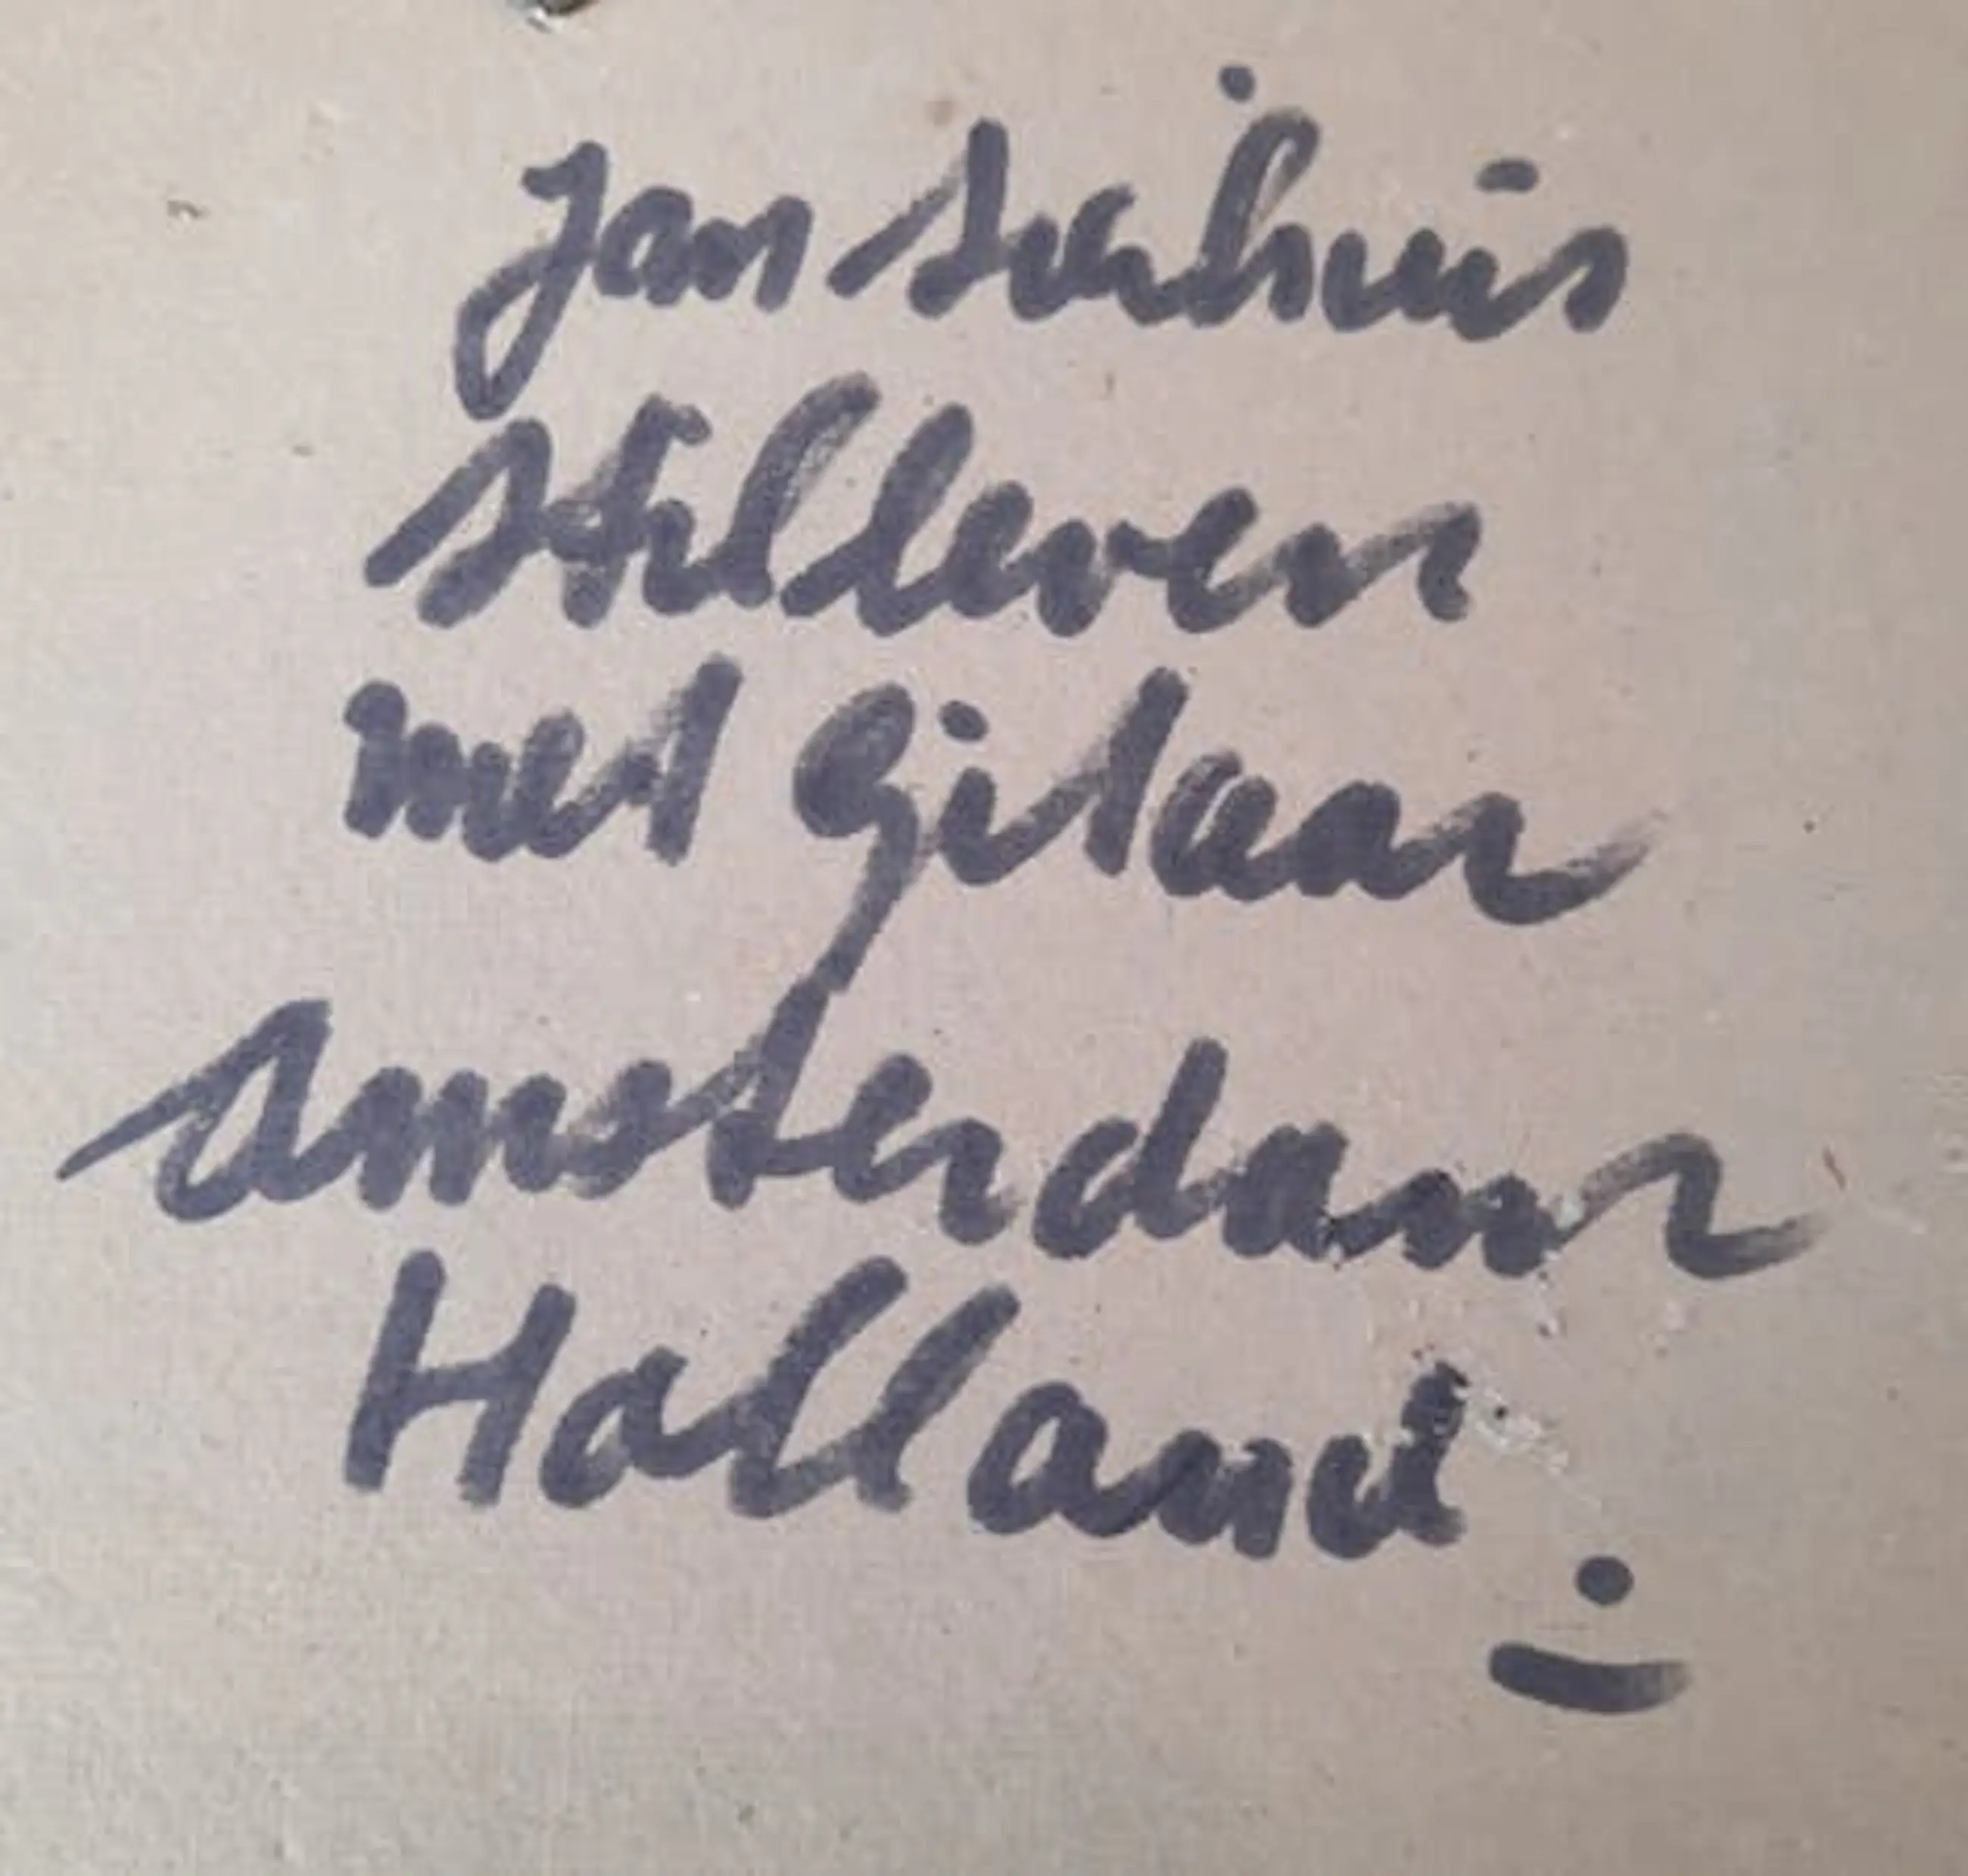 Jan Sierhuis
stilleven
met gitaar
Amsterdam
Holland